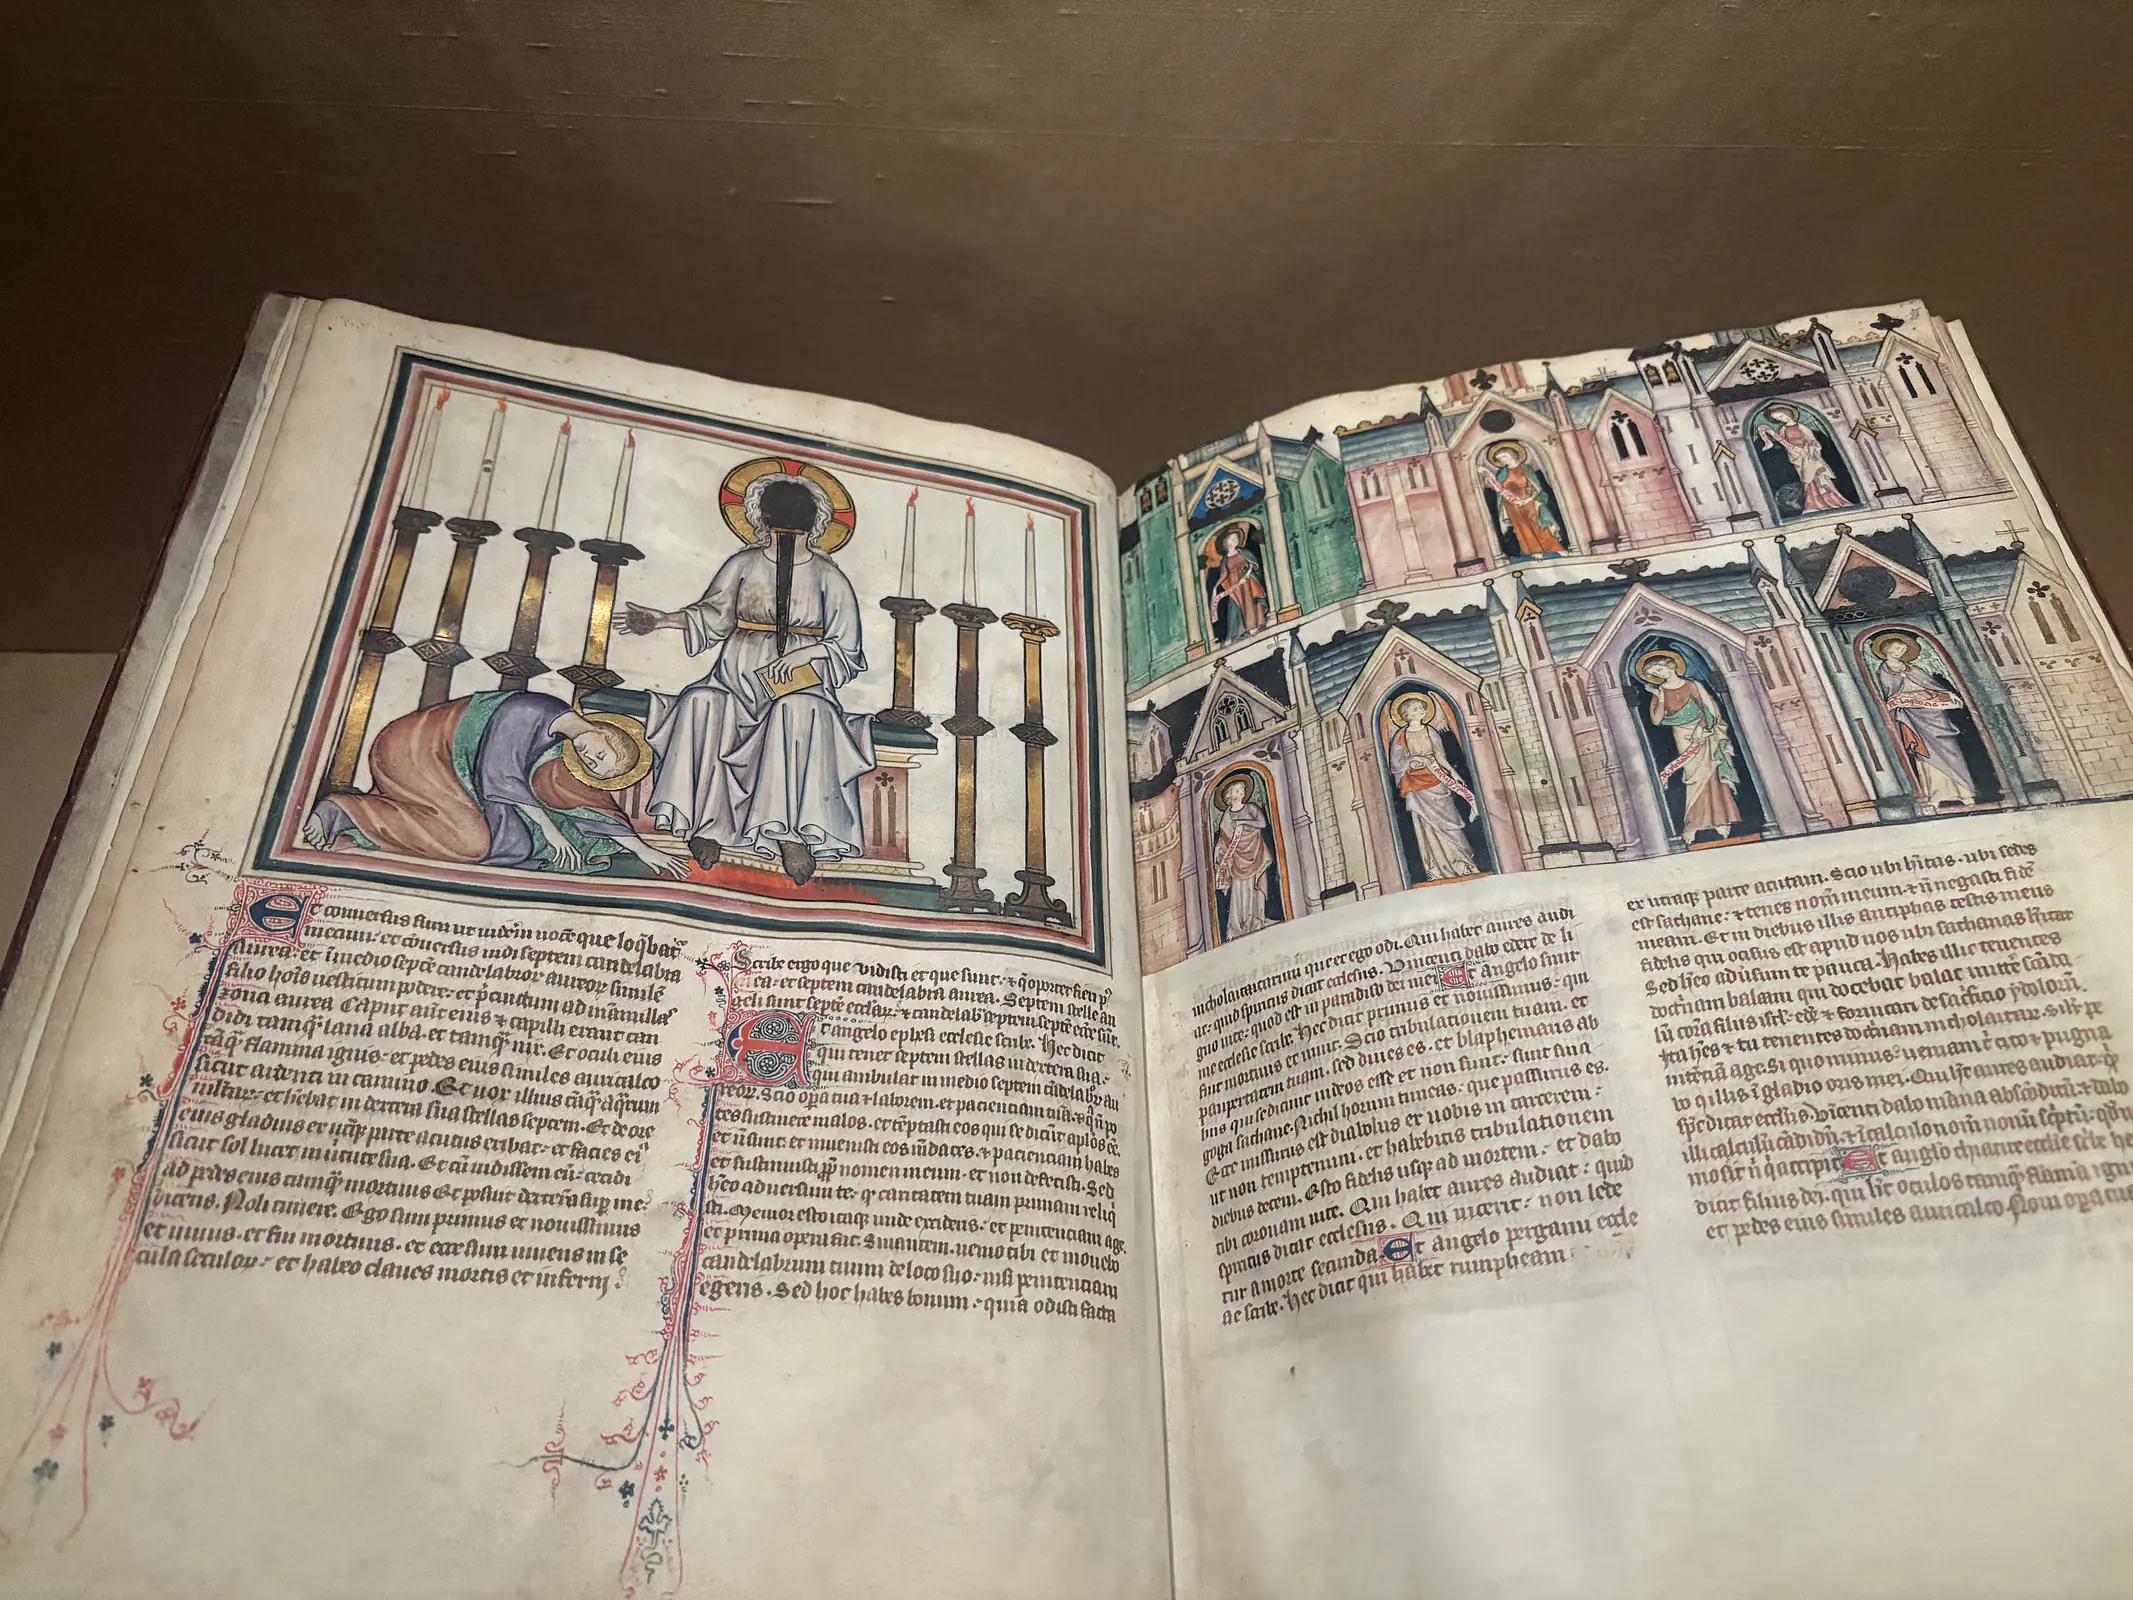 Et conversus sum ut viderem vocē que loq̄bat᷑
mecum· et cōversus vidi septem candelabra
aurea· et ī medio septē candelabroꝝ aureoꝝ similē
filio hoīs vestitum podere· et p̄cinctum ad mamillas
zona aurea Caput aūt eius ⁊ capilli erant can
didi tamq̄ lana alba· et tamq̄ nix· Et oculi eius
tāq̄ flamma ignis· et pedes eius similes auricalco
sicut ardenti in camino· Et vox illius tāq̄ aq̄rum
multar· et h̄ebat in dextera sua stellas septem· Et de ore
eius gladius ex utq̄ parte acutus exibat· et facies ei᷑
sicut sol lucet in virtute sua· Et cū vidissem eū· cecidi
ad pedes eius tamq̄ mortuus Et posuit dexterā sup me·
dicens· Noli timere· Ego sum primus et novissimus
et vivus· et fui mortuus· et ecce sum vivens in se
cula seculoꝝ· et habeo claves mortis et inferni·
Scribe ergo que vidisti et que sunt· ⁊ q̄ oportet fieri p᷑
ca· et septem candelabra aurea· Septem stelle an
geli sunt septē ecclaꝝ· ⁊ candelab᷑ septem septē eccle sūt·
Et angelo ephesi ecclesie scribe· Hec dicit
qui tenet septem stellas in dextera sua·
qui ambulat in medio septem cādelabꝝ au
reoꝝ· Scio opera tua ⁊ laborem· et pacienciam tuā· ⁊ q̄ n̄ po
tes sustinere malos· et tēptasti eos qui se dicūt aplōs eē·
et n̄ sunt· et invenisti eos mēdaces· ⁊ pacienciam habes
et sustinuisti ꝓpt nomen meum· et non defecisti· Sed
h̄eo adversum te· q᷑ caritatem tuam primam reliq᷑
sti· Memor esto itaq᷑ unde excideris· et penitenciam age·
et prima opera fac· Sin autem· venio tibi et movebo
candelabrum tuum de loco suo· nisi penitenciam
egeris· Sed hoc habes bonum· quia odisti facta
nicholaitarum que et ego odi· Qui habet aures audi
at· quid spiritus dicat ecclesiis· Vincenti dabo edere de li
gno vite· quod est in paradiso dei mei Et angelo smir
me ecclesie scribe· Hec dicit primus et novissimus· qui
fuit mortuus et vivit· Scio tribulationem tuam· et
paupertatem tuam· sed dives es· et blasphemaris ab
hiis qui se dicunt iudeos esse et non sunt· sunt sina
goga sathane· Nichil horum timeas· que passurus es·
Ecce missurus est diabolus ex vobis in carcerem·
ut non temptemini· et habebitis tribulationem
diebus decem· Esto fidelis usq᷑ ad mortem· et dabo
tibi coronam vite· Qui habet aures audiat· quid
spiritus dicat ecclesiis· Qui vicerit· non lede
tur a morte secunda· Et angelo pergami eccle
sie scribe· Hec dicit qui habet rumpheam
ex utraq᷑ parte acutam· Scio ubi hītas· ubi sedes
est sathane· ⁊ tenes nom̄ meum· ⁊ n̄ negasti fidē
meam· Et in diebus illis antiphas testis meus
fidelis qui occisus est apud vos ubi sathanas hītat
Sed h̄eo adūsum te pauca· Habes illic tenentes
doct̄nam balaam qui docebat balac mitt̄e scāda
lū corā filiis isrl· ede᷑ ⁊ fornicari de sac̄ficio ydoloꝝ·
Ita h̄es ⁊ tu tenentes doct̄nam nicholaitar· Silr pe
nitēciā age· Si quo minus· veniam t̄ cito ⁊ pugna
bo cū illis ī gladio oris mei· Qui h̄t aures audiat· q̄
sp̄c dicat ecclīis· Vincenti dabo māna abscōditū· ⁊ dabo
illi calculū cādidū· ⁊ ī calculo nom̄ novū sc̄ptū· q̄d n̄o
mo scit n̄ q̄ accipit Et anglo thiatire ecclīe sc̄be he
dicit filius dei· qui h̄t oculos tamq̄ flāma igni
et pedes eius similes auricalco Novi oꝑa tua